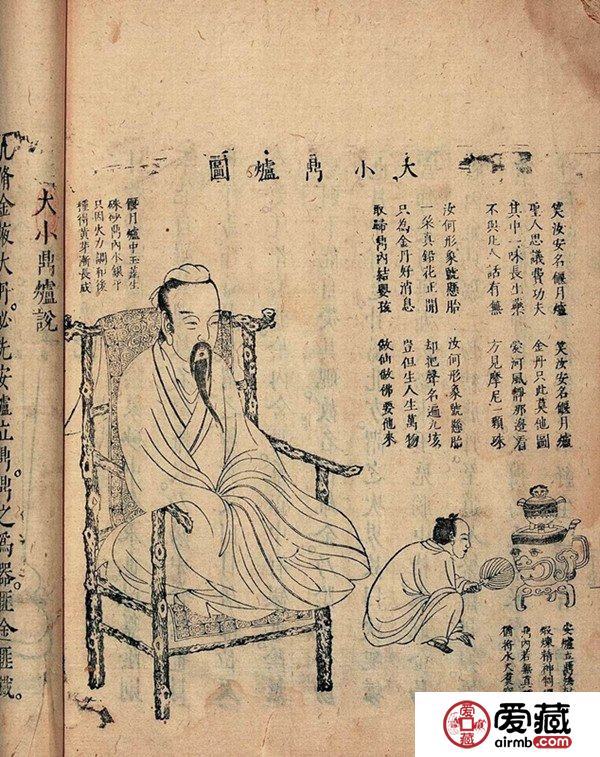 大小鼎爐圖
笑汝安名偃月爐
聖人思議費功夫
其中一味長生藥
不與凡人話有無
汝何形象號懸胎
一朶真鉛花正開
只為金丹好消息
取歸鼎內結嬰孩
笑汝安名偃月爐
金丹只此莫他圖
愛河風靜那邊看
方見摩尼一顆珠
汝何形象號懸胎
却把聲名遍九垓
豈但生人生萬物
做仙做佛要他來
偃月爐中玉蕊生
硃砂鼎內水銀平
只因火力調和後
種得黃芽漸長成
安爐立鼎法
煅煉精神制
鼎內若無真
猶將水火煮空
大小鼎爐說
凡脩金液大丹必先安爐立鼎。鼎之爲器。匪金匪鐵。
愛藏
爱藏
airmb.com